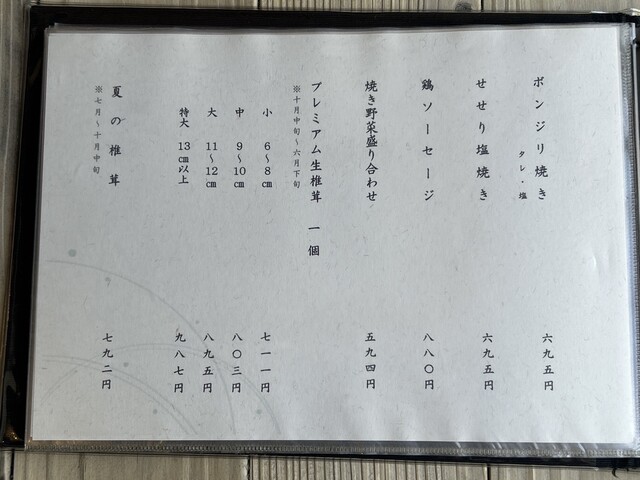 ボンジリ焼き タレ・塩 六九五円
せせり塩焼き 六九五円
鶏ソーセージ 八八〇円
焼き野菜盛り合わせ 五九四円
プレミアム生椎茸 一個
※十月中旬～六月下旬
小 6～8㎝ 七一一円
中 9～10㎝ 八〇三円
大 11～12㎝ 八九五円
特大 13㎝以上 九八七円
夏の椎茸 七九二円
※七月～十月中旬